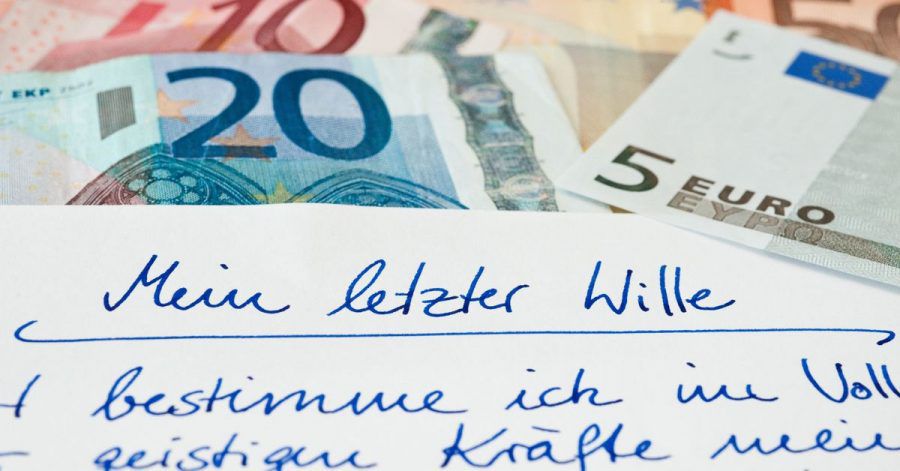 10
50
EKP
20
5 EURO
ΕΥΡΩ
Mein letzter Wille
bestimme ich im Voll
geistigen Kräfte mein